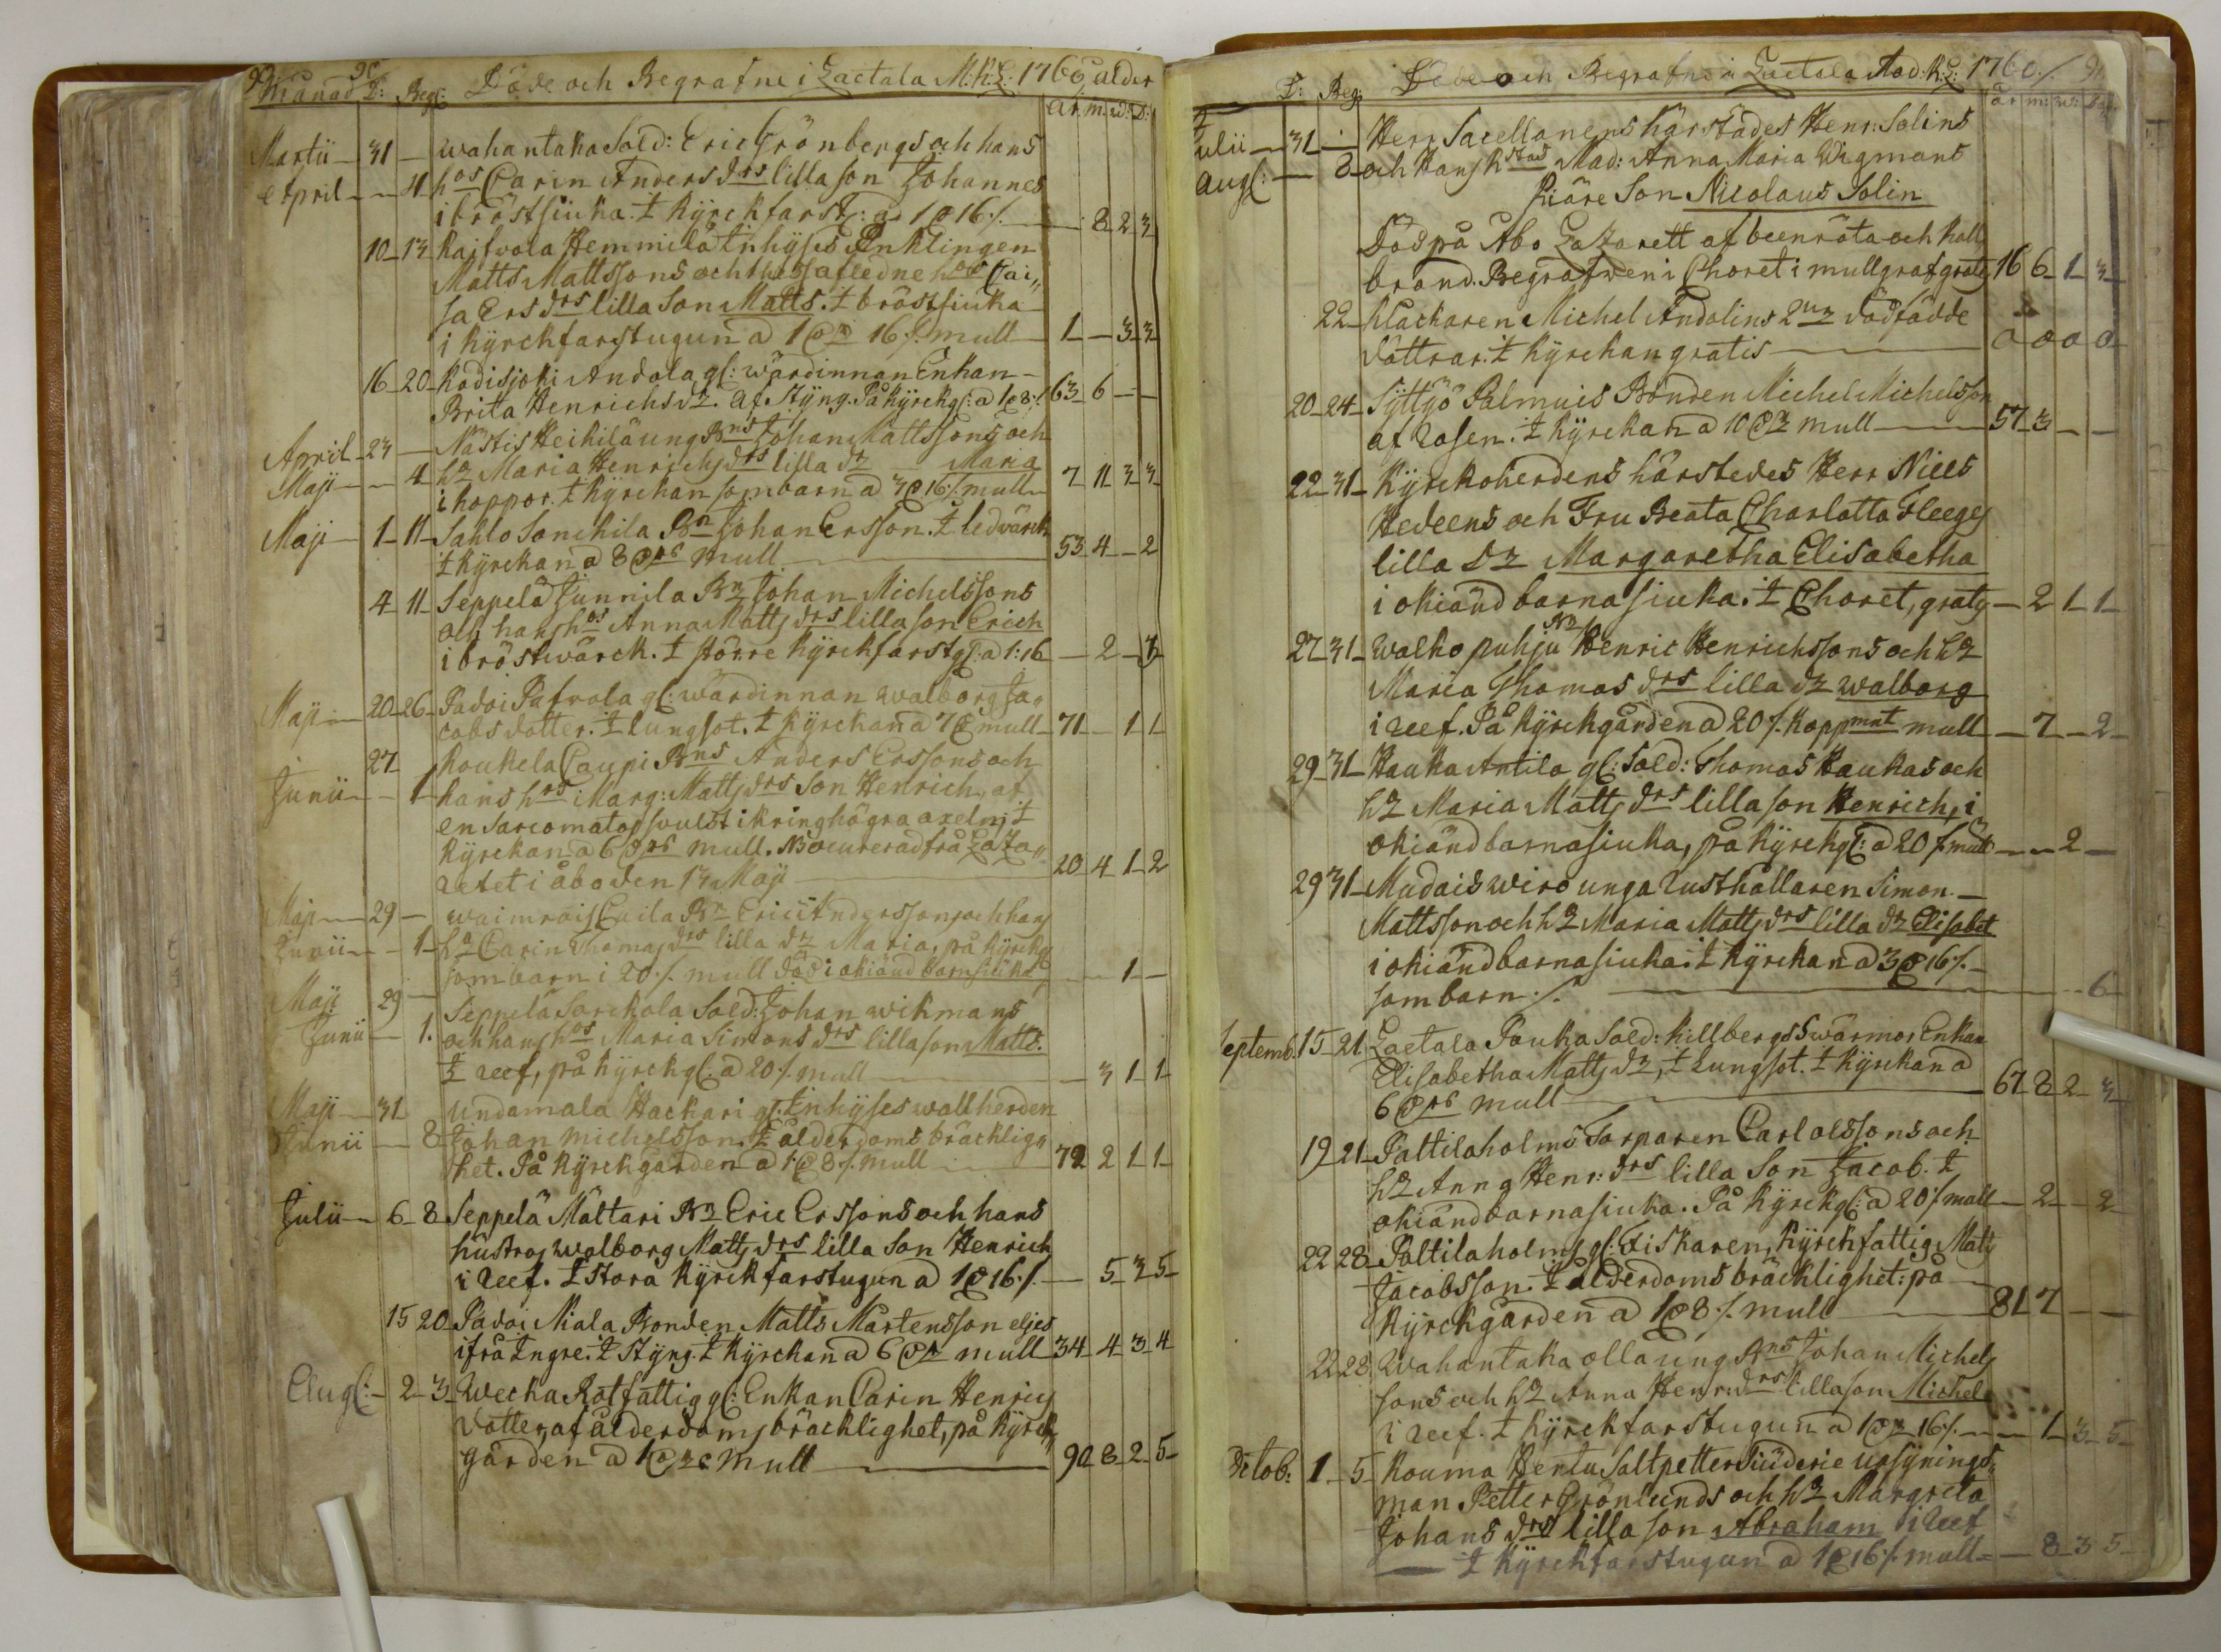 90
Månad D: Begr: Döde och Begrafne i Laetala M:K:L: 1760 ålder
år. m. w: D:
Martii 31 — wahantaka Sold: Eric Grönbergs och hans
April — 4 hos Carin Anders drs lilla son Johannes
i bröstsiuka. i kÿrckfarst: a 1 16 — 8 2 3
10 13 Kaifvola Hemmilä Inhÿses Enklingen
Matts Mattssons och thess afledne hos Cai„
sa Ers drs lilla Son Matts. i bröstsiuka
i kÿrckfarstugun a 1 16 mull 1 — 3 3
16 20 Kodisjoki Andola gl: wärdinnan Enkan
Brita Henrichs dr. af Stÿng. På kÿrckg: a 1 8 63 6 — —
April 23 — Nästis Heikilä ung Bns Johan Mattssons och
Maji — 4 hr Maria Henrichs drs lilla dr Maria
i koppor. i kÿrckan som barn a 3 16 mull 7 11 3 3
Maji 1 11 Sahlo Sonckila Bn Johan Ersson. i ledwärck
i kÿrckan a 8 mull 53 4 — 2
4 11 Seppelä Junnila Br Johan Michelssons
och hans hos Anna Matts drs lilla son Erich
i bröstwärck. i större kÿrckfarstg: a 1:16 — 2 — 3
Maji 20 26 Padoi Pafvola gl: wärdinnan Walborg Ja„
cobs dotter. i lungsot. i kÿrckan a 7 mull 71 — 1 1
27 Koukela Caupi Bns Anders Erssons och
Junii — 1 hans hrs Marg: Matts drs Son Henrich, af
en sarcomatos svulst ikring högra axeln, i
kÿrckan a 6 mull. NB ocurerad frå Laza„
retet i åbo den 13 Maji 20 4 1 2
Maji 29 — waimrois Cuila Br Eric Anderssons och hans
Junii — 1 hr Carin Thomas drs lilla dr Maria, på kÿrckg:
som barn i 20 mull död i okiänd barnsiuka — — 1 —
Maji 29 — Seppelä Sorckola Sold: Johan Wikmans
Junii — 1. och hans hos Maria Simons drs lilla son Matts.
i reef, på kÿrckg: a 20 mull — 3 1 1
Maji 31 Undamala Hackari gl: Inhÿses wallherden
Junii — 8 Johan Michelsson. i ålderdoms bräcklig„
het. På kÿrckgården a 1 8 mull 72 2 1 1
Julii 6 8 Seppelä Mältari Br Eric Erssons och hans
hustros Walborg Matts drs lilla Son Henrich
i reef. i Stora kÿrckfarstugun a 1 16 — 5 3 5
15 20 Padoi Niala Bonden Matts Mårtensson eljes
ifrå Ingre. i Stÿng. i kÿrckan a 6 mull 34 4 3 4
Aug: 2 3 Wecka Rotfattig gl: Enkan Carin Henrics
dotter, af ålderdoms bräcklighet, på kÿrck„
gården a 1 mull 90 8 2 5
D: Beg: Döde och Begrafne i Laetala Mod:K:L: 1760. 91
år m: w: D
Julii 31 — Herr Sacellanens härstädes Henr: Solins
Aug: — 8 och Hans K Mad: Anna Maria Wigmans
kiäre Son Nicolaus Solin
Död på Åbo Lazarett af beenröta och kall
brand. Begrafwen i Choret i mullgraf gratis 16 6 1 3
22 Klåckaren Michel Andolins 2ne dödfödde
döttrar. i kÿrckan gratis 0 0 0 0
20 24 Sÿttÿö Palmuis Bonden Michel Michelsson
af rosen. i kÿrckan a 10 mull 57 3 — —
22 31 Kÿrckoherdens härstedes Herr Niels
Hedeens och Fru Beata Charlotta Fleeges
lilla dr Margaretha Elisabetha
i okiänd barnasiuka. i Choret, gratis — 2 1 1
27 31 Walko puhju Henric Henrichssons och hr
Maria Thomas drs lilla dr Walborg
i reef. På kÿrckgården a 20 koppmnt mull — 7 — 2
29 31 Hauka Antila gl: Sold: Thomas Haukas och
hr Maria Matts drs lilla son Henrich, i
okiänd barnasiuka, på kÿrckg: a 20 mull — — 2 —
29 31 Mudais wiro unga rusthållaren Simon
Mattsson och hr Maria Matts drs lilla dr Elisabet
i okiänd barnasiuka. i kÿrckan a 3 16
som barn — — — 6
Septemb. 15 21 Laetala Pauka Sold: Killbergs Swärmor Enkan
Elisabetha Matts dr, i lungsot. i kÿrckan a
6 mull 67 8 2 3
19 21 Pattilaholms Torparen Carl olssons och
hr Anna Henr: drs lilla Son Jacob. i
okiänd barnasiuka. På kÿrckg: a 20 mull — 2 — 2
22 28 Poltilaholms gl: Fiskaren, kÿrckfattig Matts
Jacobsson. i ålderdoms bräcklighet: på
kÿrckgården a 1 8 mull 81 7 — —
22 28 Wahantaka olla ung Bns Johan Michels
sons och hr Anna Henr: drs lilla son Michel
i reef. i kÿrckfarstugun a 1 16 — 1 3 5
Octob: 1 5 Kouma Hentu Saltpetter Siuderie upsÿnings„
man Petter Grönlunds och hr Margreta
Johans drs lilla son Abraham i reef
i kÿrckfarstugun a 1 16 mull — 8 3 5